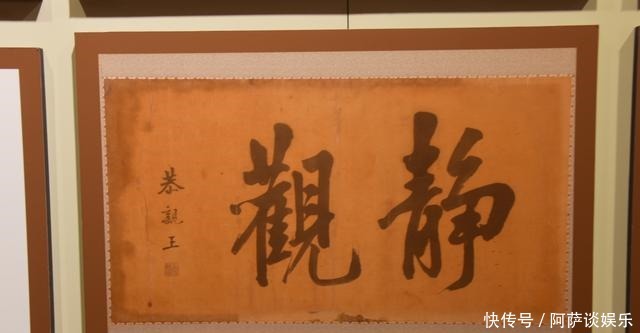 静觀
恭親王
快传号／阿萨谈娱乐